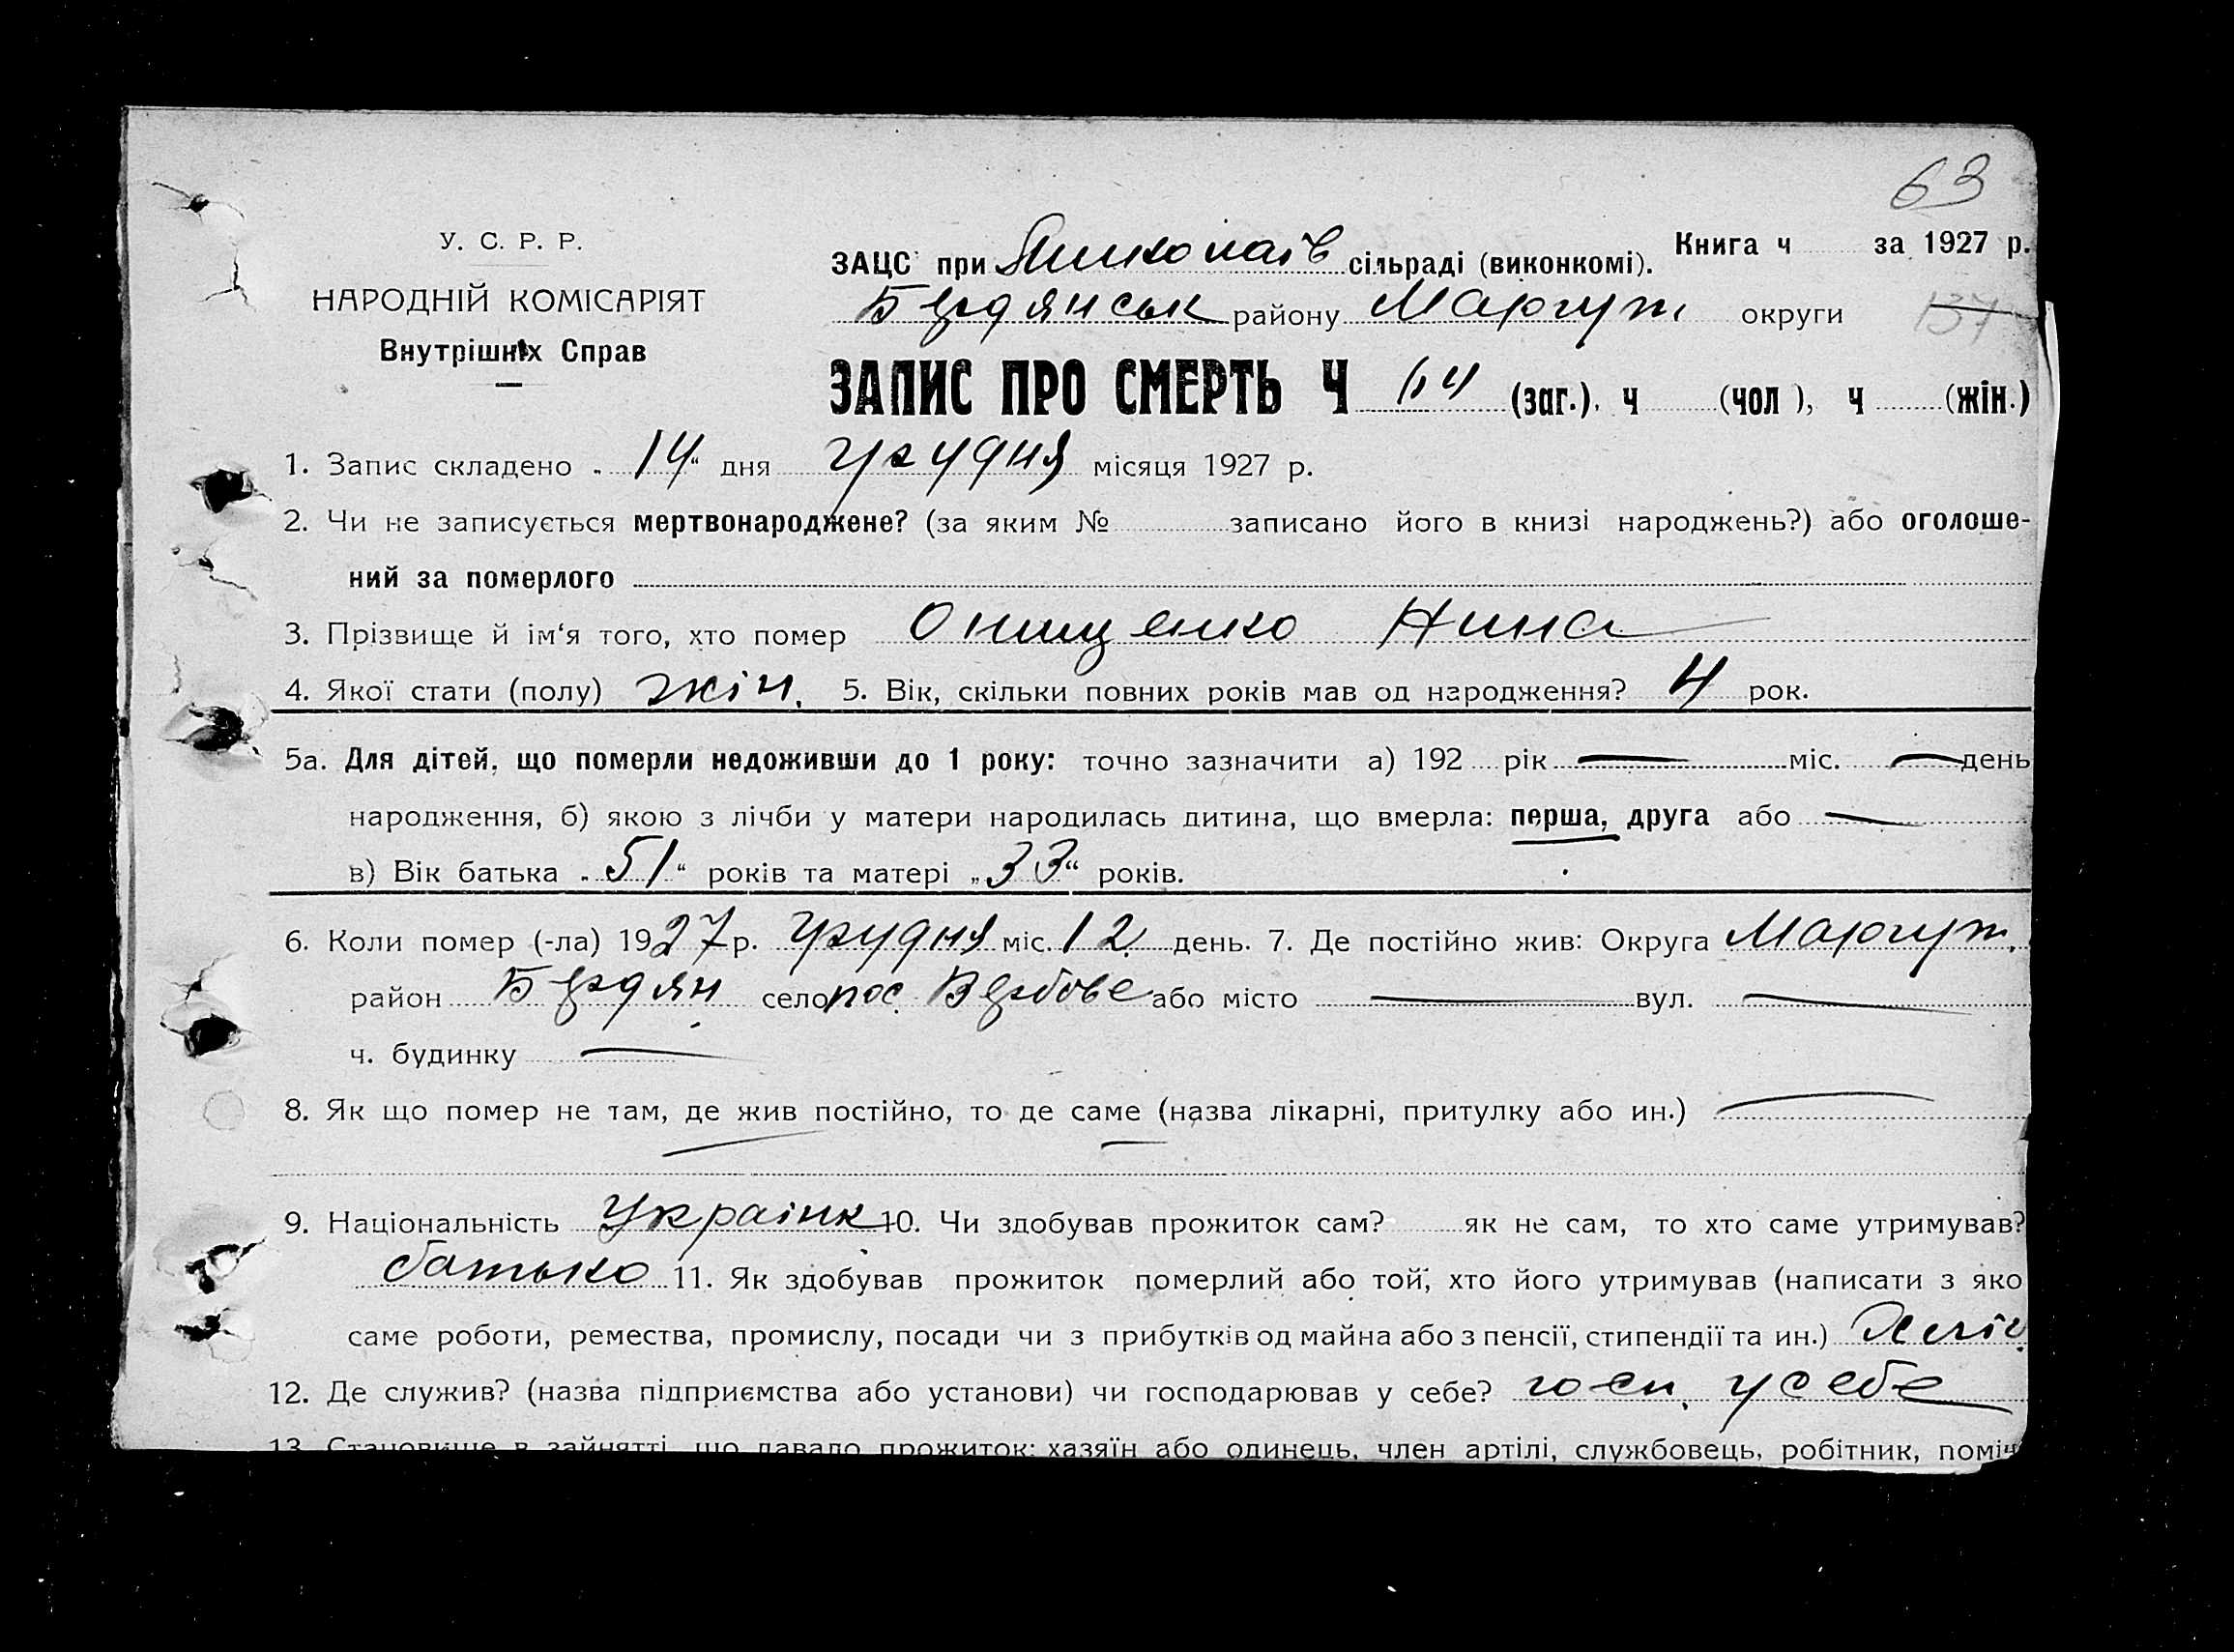 63
У. С. Р. Р.
НАРОДНІЙ КОМІСАРІЯТ
Внутрішніх Справ
ЗАЦС при Миколаїв сільраді (виконкомі). Книга ч за 1927 р.
Бердянськ району Маріуп округи 137
ЗАПИС ПРО СМЕРТЬ Ч 64 (заг.), ч (чол ), ч (жін.)
1. Запис складено „ 14 “ дня грудня місяця 1927 р.
2. Чи не записується мертвонароджене? (за яким № записано його в книзі народжень?) або оголоше-
ний за померлого
3. Прізвище й ім‘я того, хто помер Онищенко Нина
4. Якої стати (полу) жін. 5. Вік, скільки повних років мав од народження? 4 рок.
5а. Для дітей, що померли недоживши до 1 року: точно зазначити а) 192 рік — міс. — день
народження, б) якою з лічби у матери народилась дитина, що вмерла: перша, друга або —
в) Вік батька „ 51 “ років та матері „ 33 “ років.
6. Коли помер (-ла) 1927 р. грудня міс. 12 день. 7. Де постійно жив: Округа Маріуп.
район Бердян село пос. Вербове або місто — вул. —
ч. будинку —
8. Як що помер не там, де жив постійно, то де саме (назва лікарні, притулку або ин.) —
9. Національність Українк 10. Чи здобував прожиток сам? як не сам, то хто саме утримував?
батько 11. Як здобував прожиток померлий або той, хто його утримував (написати з яко
саме роботи, ремества, промислу, посади чи з прибутків од майна або з пенсії, стипендії та ин.)
12. Де служив? (назва підприємства або установи) чи господарював у себе? госп. у себе
13. Становище в зайнятті, що давало прожиток: хазяїн або одинець, член артілі, службовець, робітник, поміч